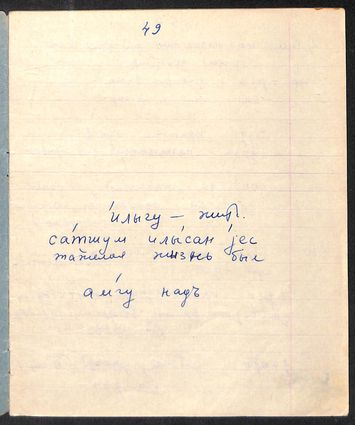 49
и́лыгу — жит.
са́тшум илы́сан jес
тяжелая жизнь был
ами́гу надъ